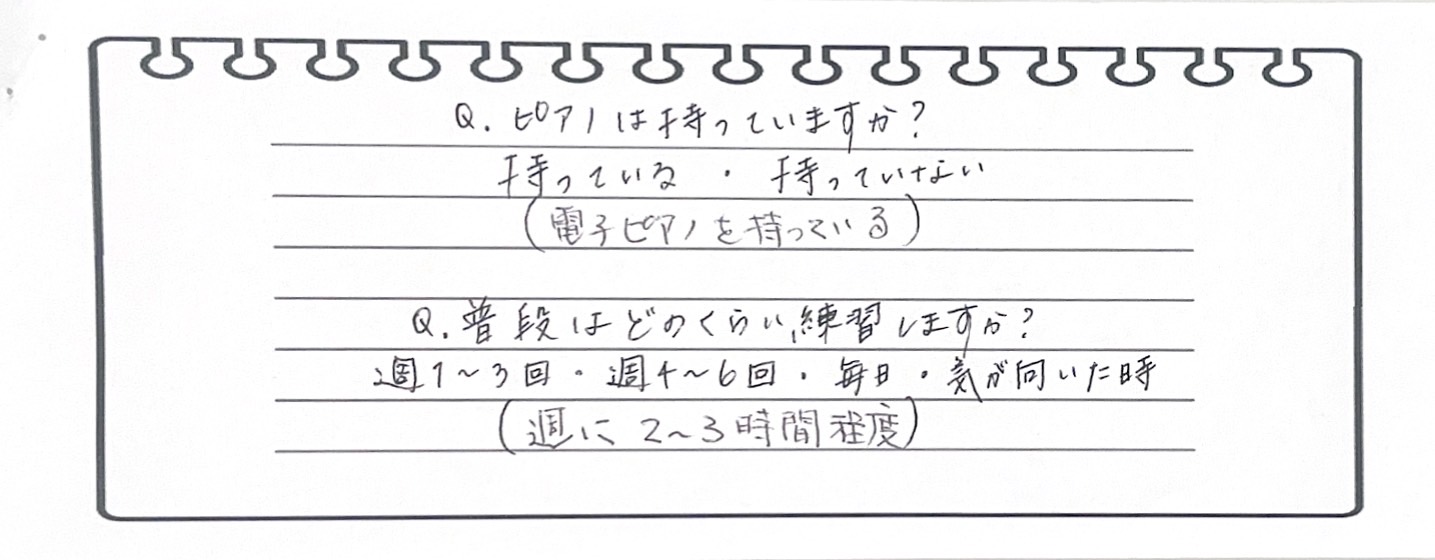 Q. ピアノは持っていますか?
持っている ・ 持っていない
(電子ピアノを持っている)
Q. 普段はどのくらい練習しますか?
週1～3回 ・ 週4～6回 ・ 毎日 ・ 気が向いた時
(週に2～3時間程度)